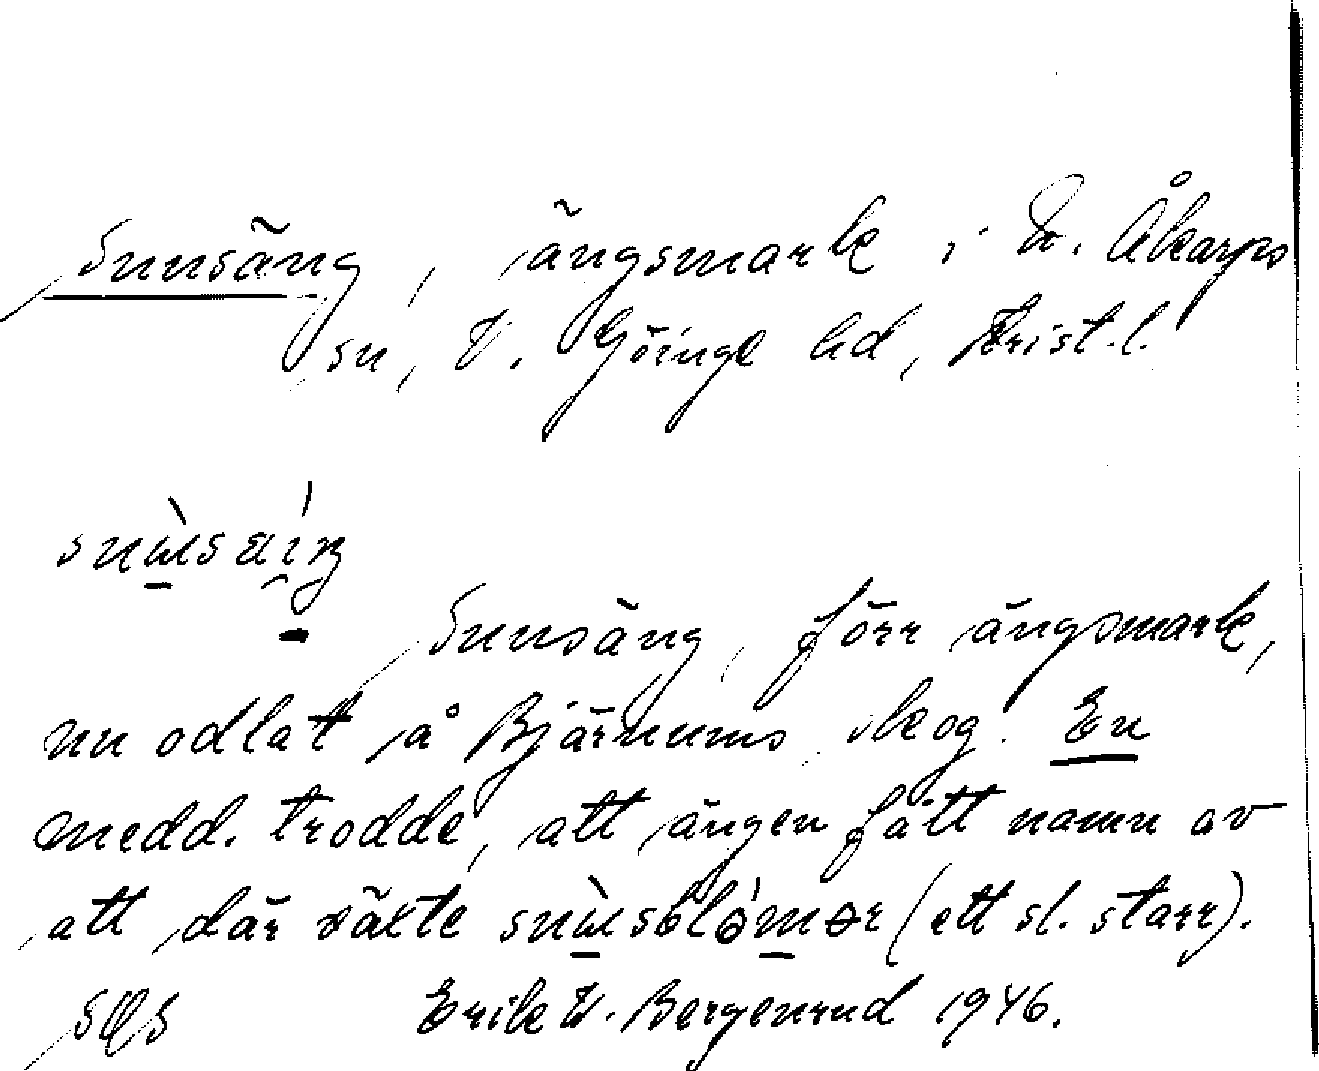 Snusäng, ängsmark i N. Åkarps
sn, V. Göinge hd, Krist.l.
Snusäng, förr ängsmark,
nu odlat å Bjärnums skog. En
medd. trodde, att ängen fått namn av
att där växte (ett sl. starr).
Erik W. Bergenrud 1946.